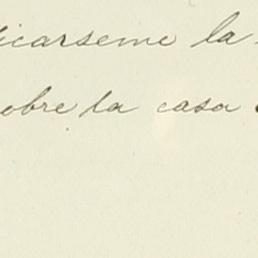 icarseme la
sobre la casa